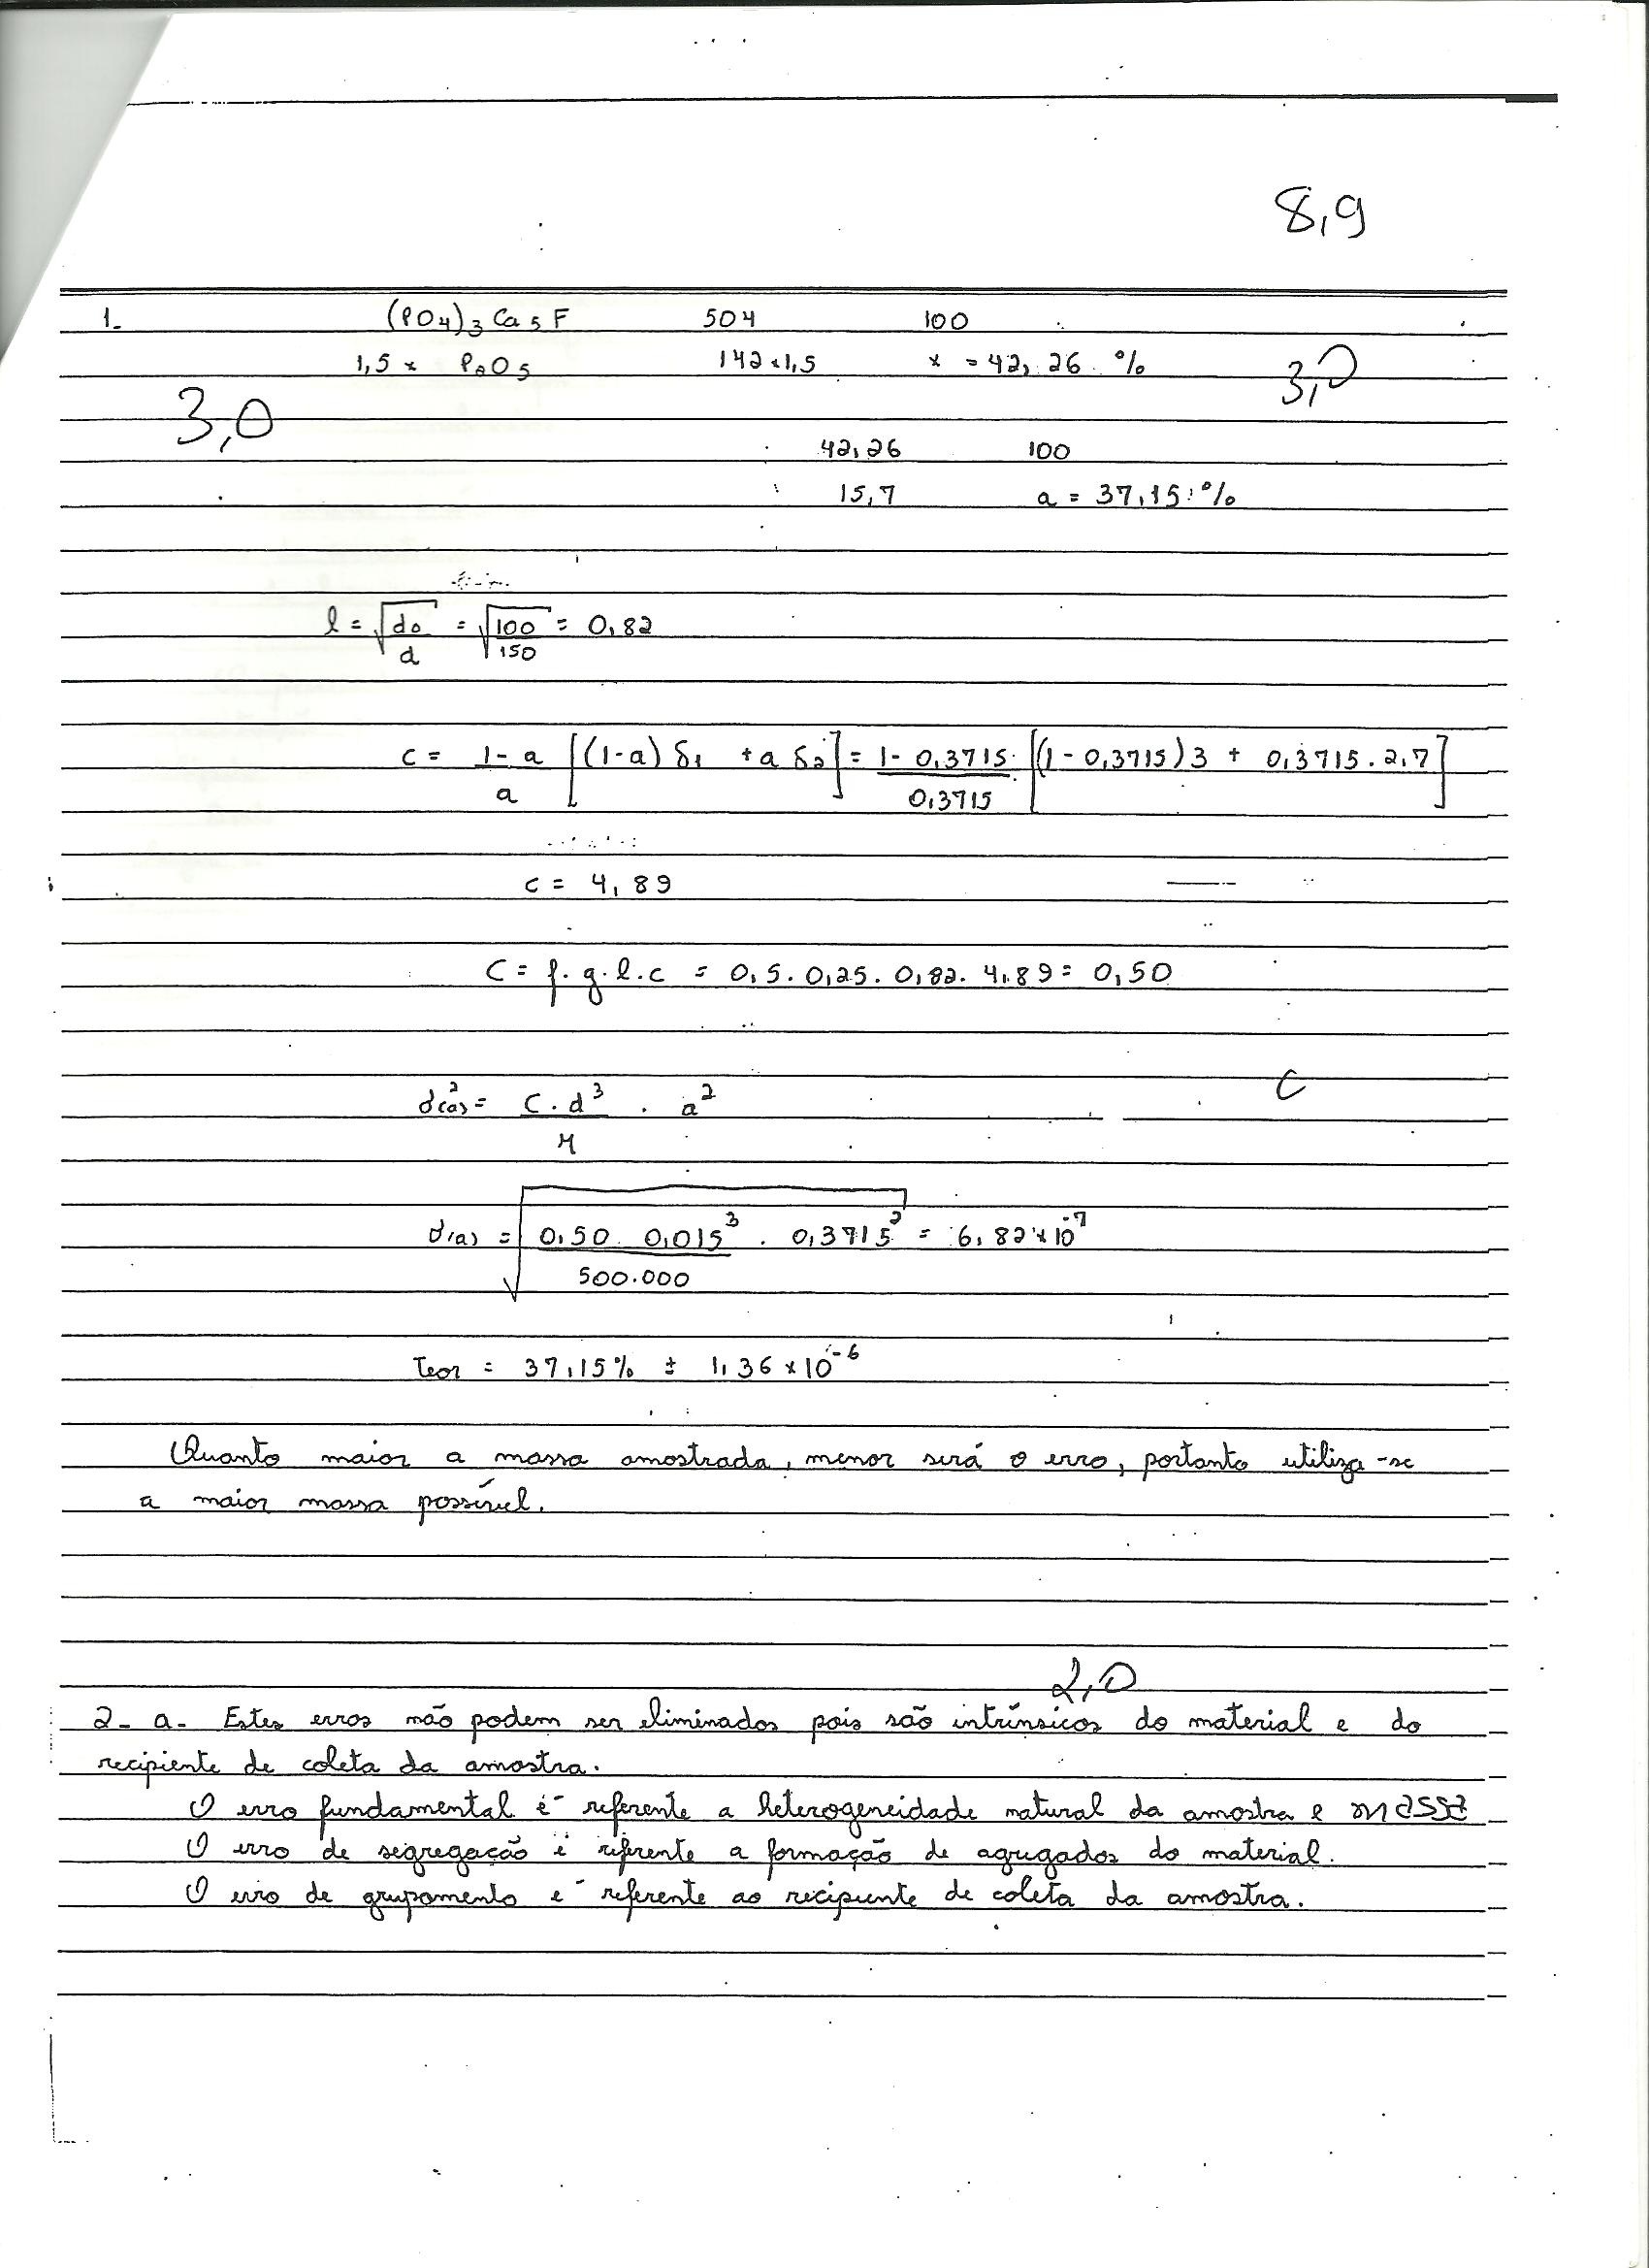 8,9
1- (PO4)3 Ca5F 504 100
1,5 x P2O5 142 x 1,5 x = 42,26 % 3,0
3,0
42,26 100
15,7 a = 37,15 %
l = √(do/d) = √(100/150) = 0,82
c = (1-a)/a [(1-a) δ1 + a δ2] = (1-0,3715)/0,3715 . [(1-0,3715)3 + 0,3715 . 2,7]
c = 4,89
C = f . g . l . c = 0,5 . 0,25 . 0,82 . 4,89 = 0,50
C
σ²(a) = (C . d³)/M . a²
σ(a) = √((0,50 . 0,015³)/500.000 . 0,3715²) = 6,82 x 10⁻⁷
Teor = 37,15% ± 1,36 x 10⁻⁶
Quanto maior a massa amostrada, menor será o erro, portanto utiliza-se
a maior massa possível.
2,0
2- a- Estes erros não podem ser eliminados pois são intrínsicos do material e do
recipiente de coleta da amostra.
O erro fundamental é referente a heterogeneidade natural da amostra e massa
O erro de segregação é referente a formação de agregados do material.
O erro de grupamento é referente ao recipiente de coleta da amostra.